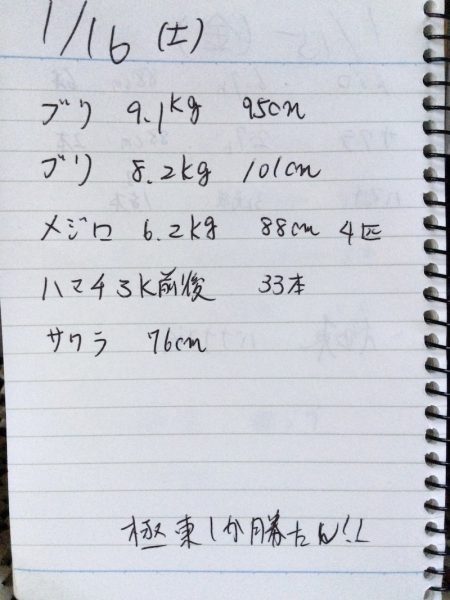 1/16 (土)
ブリ 9.1kg 95cm
ブリ 8.2kg 101cm
メジロ 6.2kg 88cm 4匹
ハマチ3K前後 33本
サワラ 76cm
極東しか勝たん!!